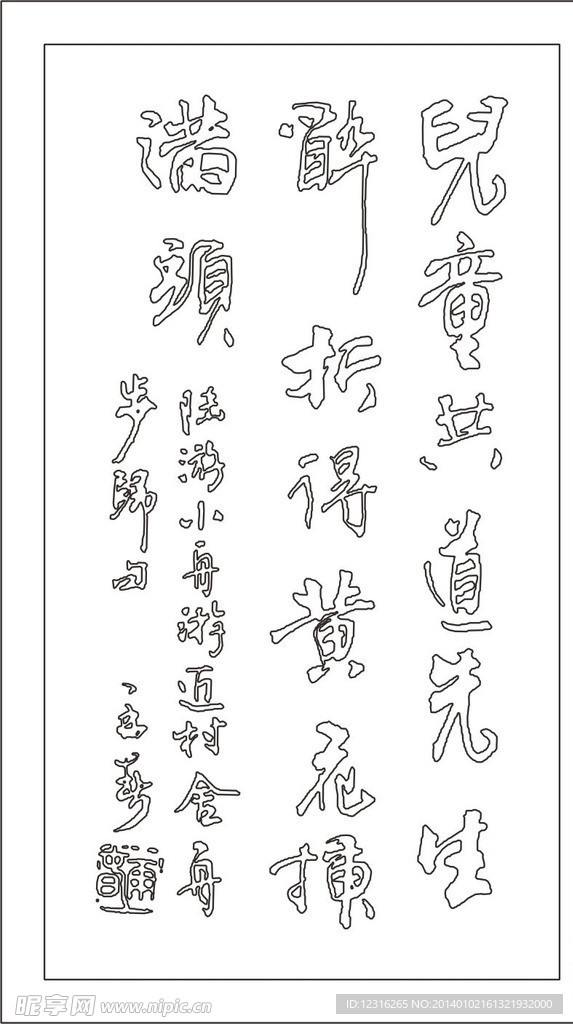 兒童共道先生
醉折得黄花插
满頭
陆游小舟游近村舍舟
步歸句
昵享网 www.nipic.cn
ID:12316265 NO:20140102161321932000